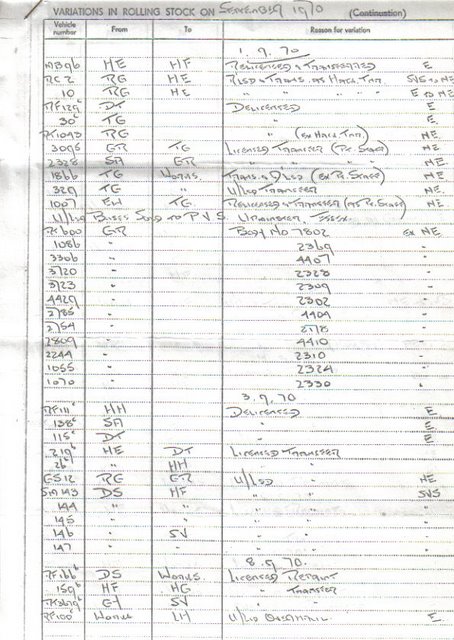 VARIATIONS IN ROLLING STOCK ON SEPTEMBER 1970 (Continuation)
Vehicle number From To Reason for variation
1.9.70
HE HF RELICENSED & TRANSFERRED E
RC 2 RG HE RLSD & TRANS. AS
10 RG HE " " " "
DT DELICENSED E
30 TG " E
RT1093 RG " HE
3095 GR TG LICENSED TRANSFER HE
2328 SA GR " " HE
1866 TG WORKS HE
329 TG " U/LSD TRANSFER HE
1007 EW TG RELICENSED & TRANSFER HE
U/LSD BUSES SOLD TO P.V.S. UPMINSTER, ESSEX.
RT 600 GR BODY NO 7802 EX HE
1086 " 2369 "
3306 " 4407 "
3720 " 2328 "
3723 " 2309 "
4429 " 2302 "
2785 " 4404 "
2754 " 2178 "
2809 " 4410 "
2244 " 2310 "
1055 " 2324 "
1070 " 2330 "
3.9.70
HH DELICENSED E
138 SA " E
115 DT " E
219 HE DT LICENSED TRANSFER
26 " HH "
GS12 RG GR U/LSD HE
SM143 DS HF " SVS
144 " " " "
145 " " " "
146 " SV " "
147 " " " "
8.9.70.
RF166 DS WORKS LICENSED REPAINT
159 HF HG " TRANSFER
SV "
RF100 WORKS LH U/LSD OVERHAUL E